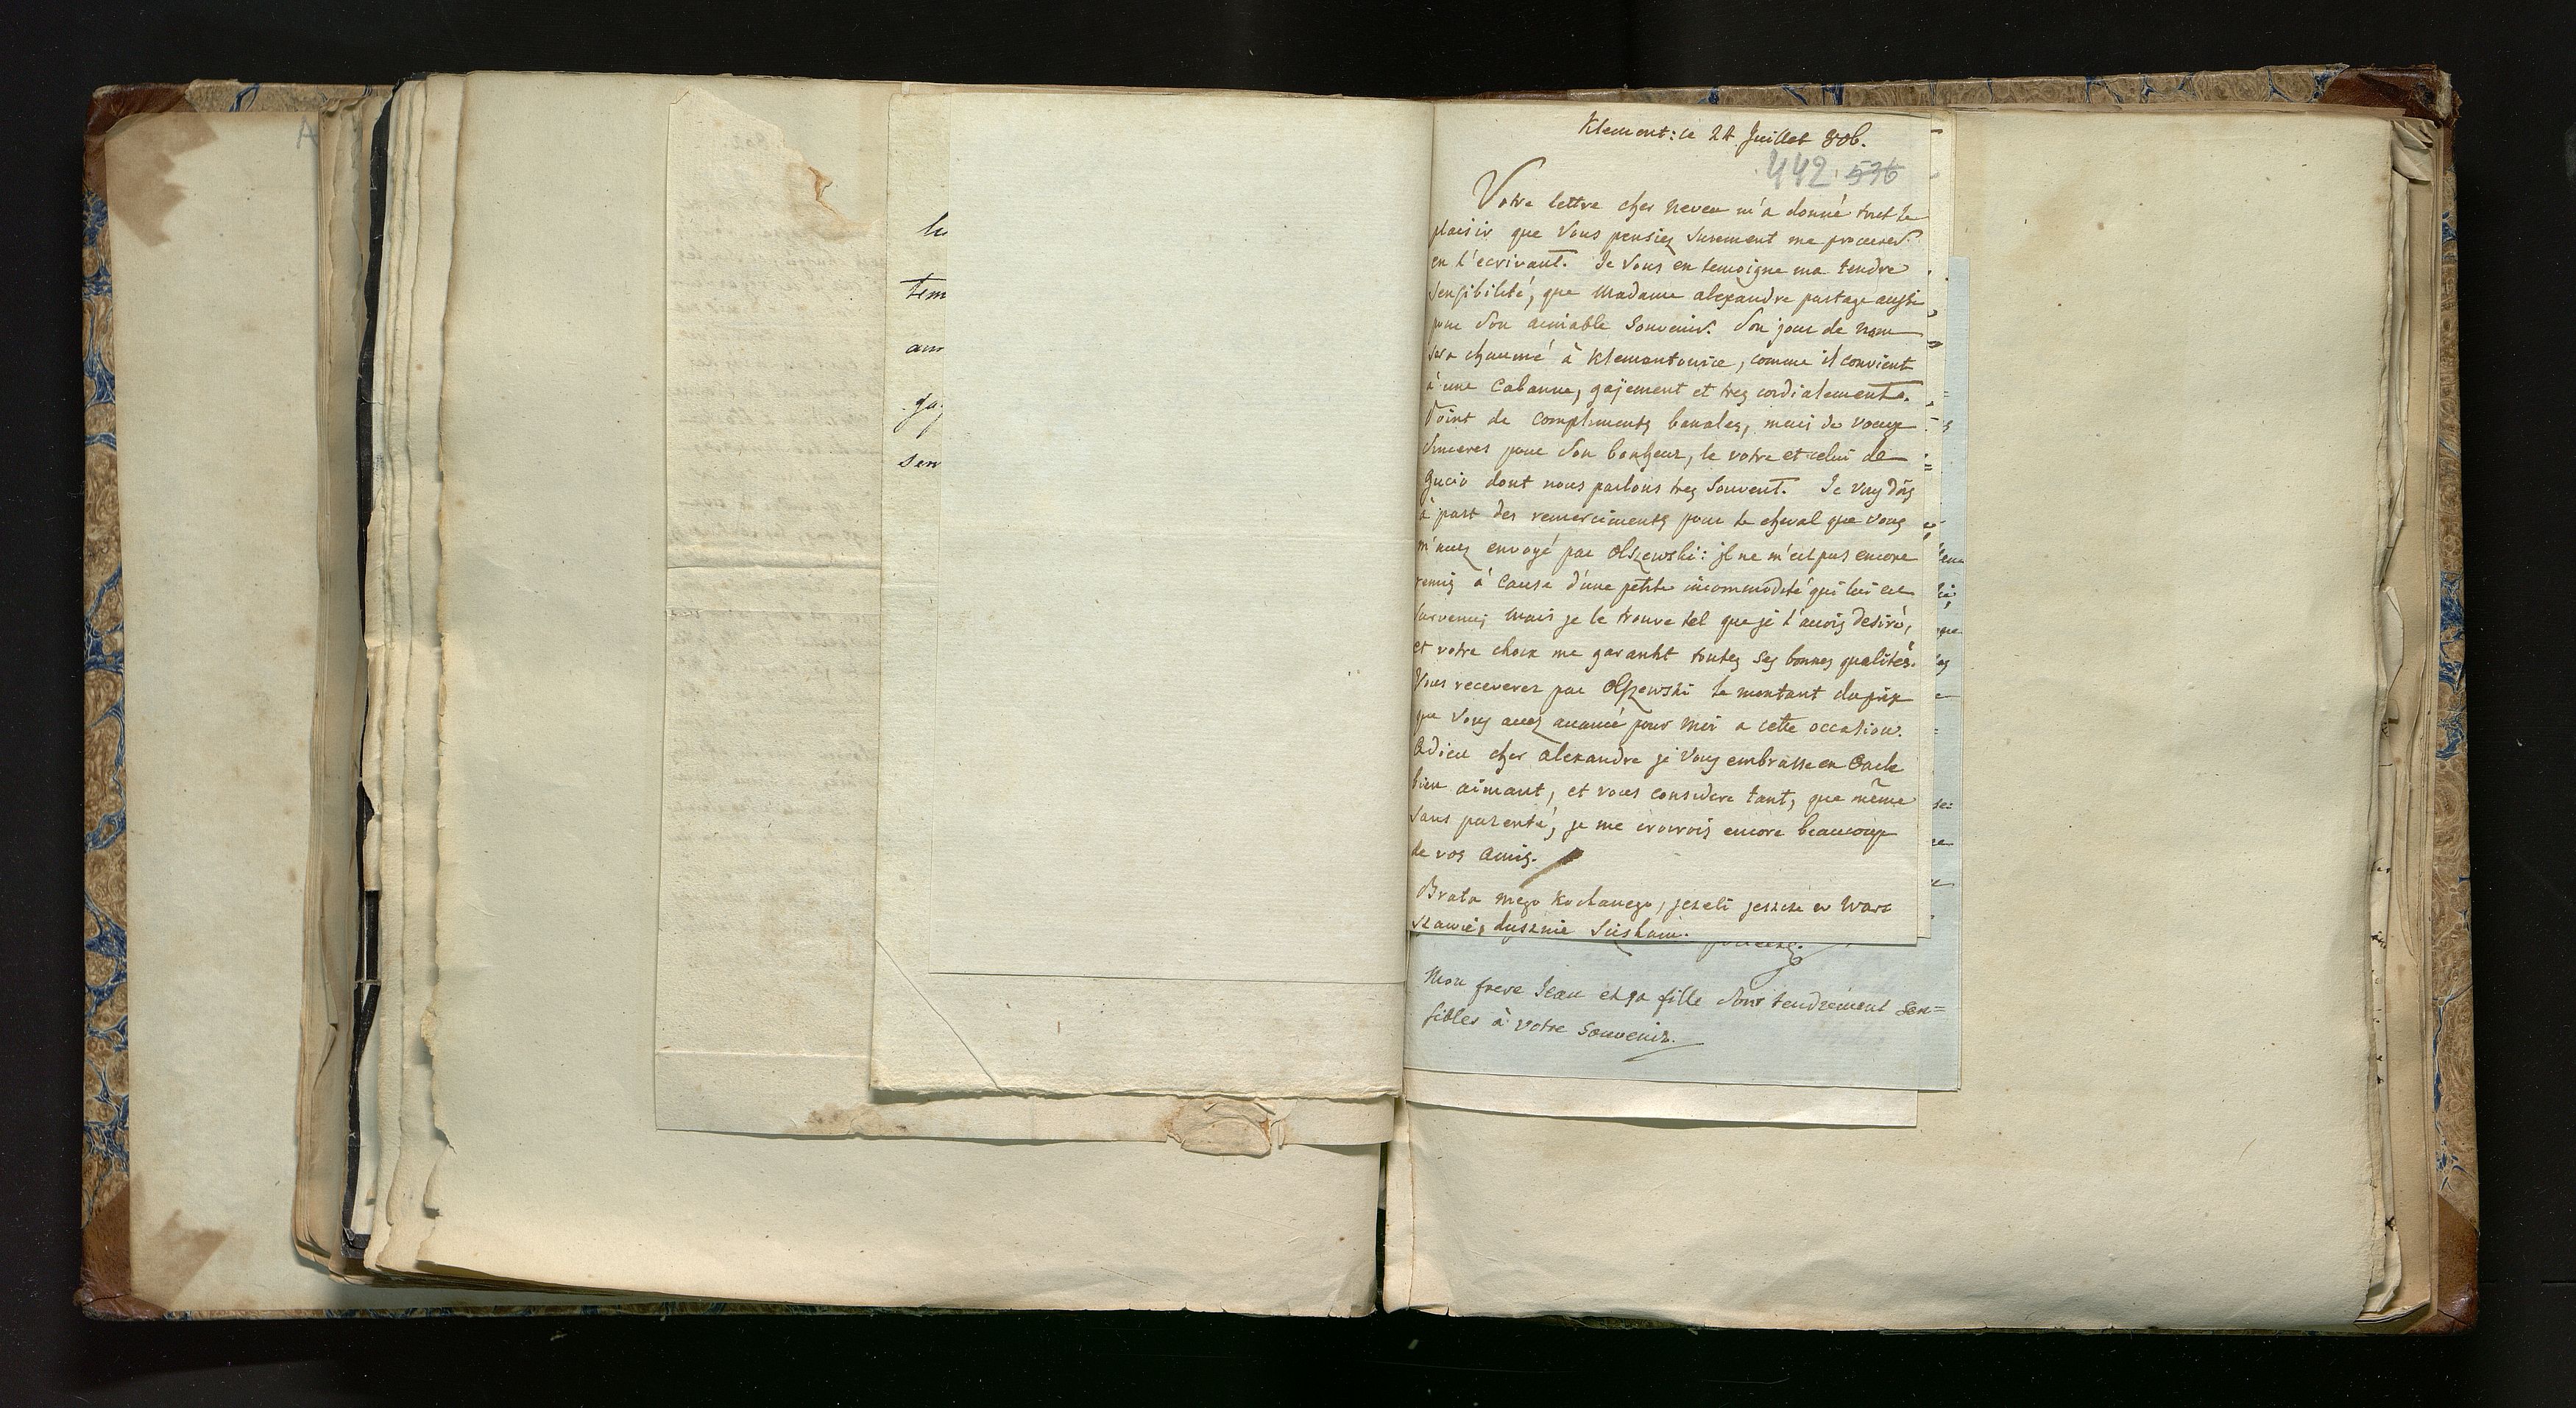 Klement: le 24 Juillet 806.
442 536
Votre lettre cher neveu m'a donné tout le
plaisir que Vous pensiez surement me procurer
en l'ecrivant. Je Vous en temoigne ma tendre
sensibilité, que Madame alexandre partage aussi
pour son aimable souvenir. Son jour de nom
sera chaumé à Klementowice, comme il convient
à une Cabanne, gajement et tres cordialement.
Point de compliments banales, mais de voeux
sinceres pour son bonheur, le votre et celui de
Gucio dont nous parlons tres souvent. Je vous dois
à part des remerciments pour le cheval que vous
m'avez envoyé par Olszewski: il ne m'est pas encore
remis à cause d'une petite incommodité qui lui est
survenu; mais je le trouve tel que je l'avois desiré,
et votre choix me garantit toutes ses bonnes qualités.
Vous receverez par Olszewski le montant du prix
que Vous avez avancé pour moi a cette occasion.
Adieu cher alexandre je Vous embrasse en Oncle
bien aimant, et vous considere tant, que même
sans parenté, je me croirois encore beaucoup
de vos amis.
Brata mego Kochanego, jezeli jeszcze w War=
szawie, dusznie sciskam.
Mon frere Jean et sa fille sont tendrement sen=
sibles à votre souvenir.